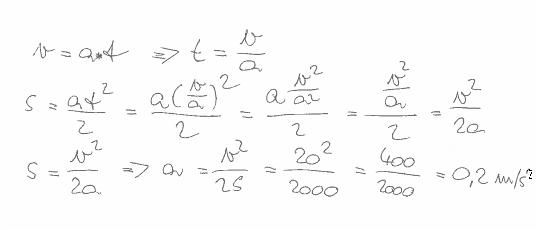 v = a·t ⇒ t = v/a
s = at²/2 = a(v/a)²/2 = a v²/a²/2 = v²/a/2 = v²/2a
s = v²/2a ⇒ a = v²/2s = 20²/2000 = 400/2000 = 0,2 m/s²